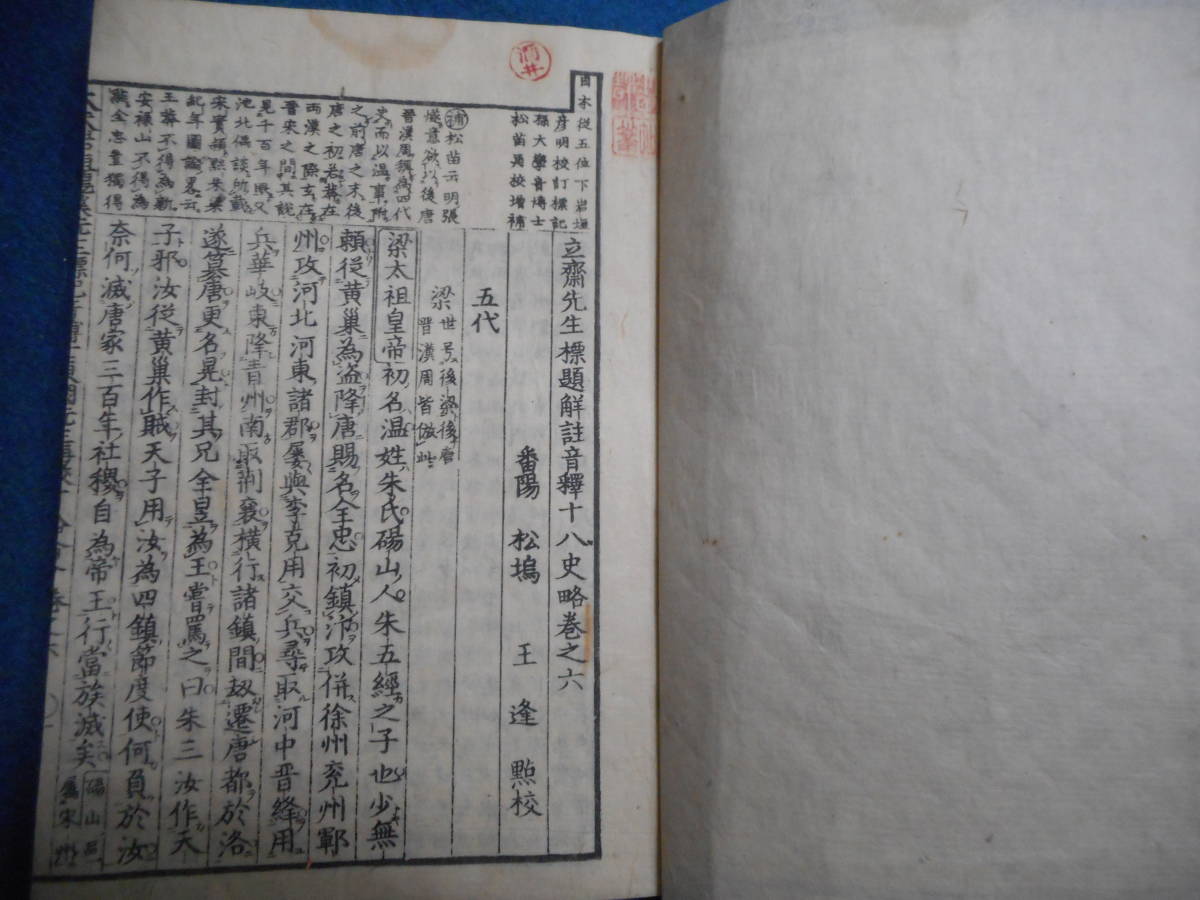 日本從五位下岩垣
彦明校訂標記
孫大學音博士
松苗再校增補
立齋先生標題解註音釋十八史略卷之六
番陽 松塢 王 逢 㸃校
五代
梁世号後梁後唐
晋漢周皆倣此
補松苗云明張
燧意欲以後唐
晉漢周稱為四代
史而以温事附
之前唐之末後
唐之初若莽在
兩漢之際玄在
晋宋之間其説
見千百年眼又
池北偶談所載
宋實頴黜朱梁
紀年圖論畧云
王莽不得為新
安禄山不得為
燕全忠豈獨得
梁太祖皇帝初名温姓朱氏碭山人朱五經之子也少無
頼從黄巢為盗降唐賜名全忠初鎮汴攻併徐州兖州鄆
州攻河北河東諸郡屡與李克用交兵尋取河中晋絳用
兵華岐東降青州南取荊襄横行諸鎮間刼遷唐都於洛
遂簒唐更名晃封其兄全昱為王嘗罵之曰朱三汝作天
子邪汝從黄巢作賊天子用汝為四鎮節度使何負於汝
奈何滅唐家三百年社稷自為帝王行當族滅矣
碭山邑
屬宋州
酒井